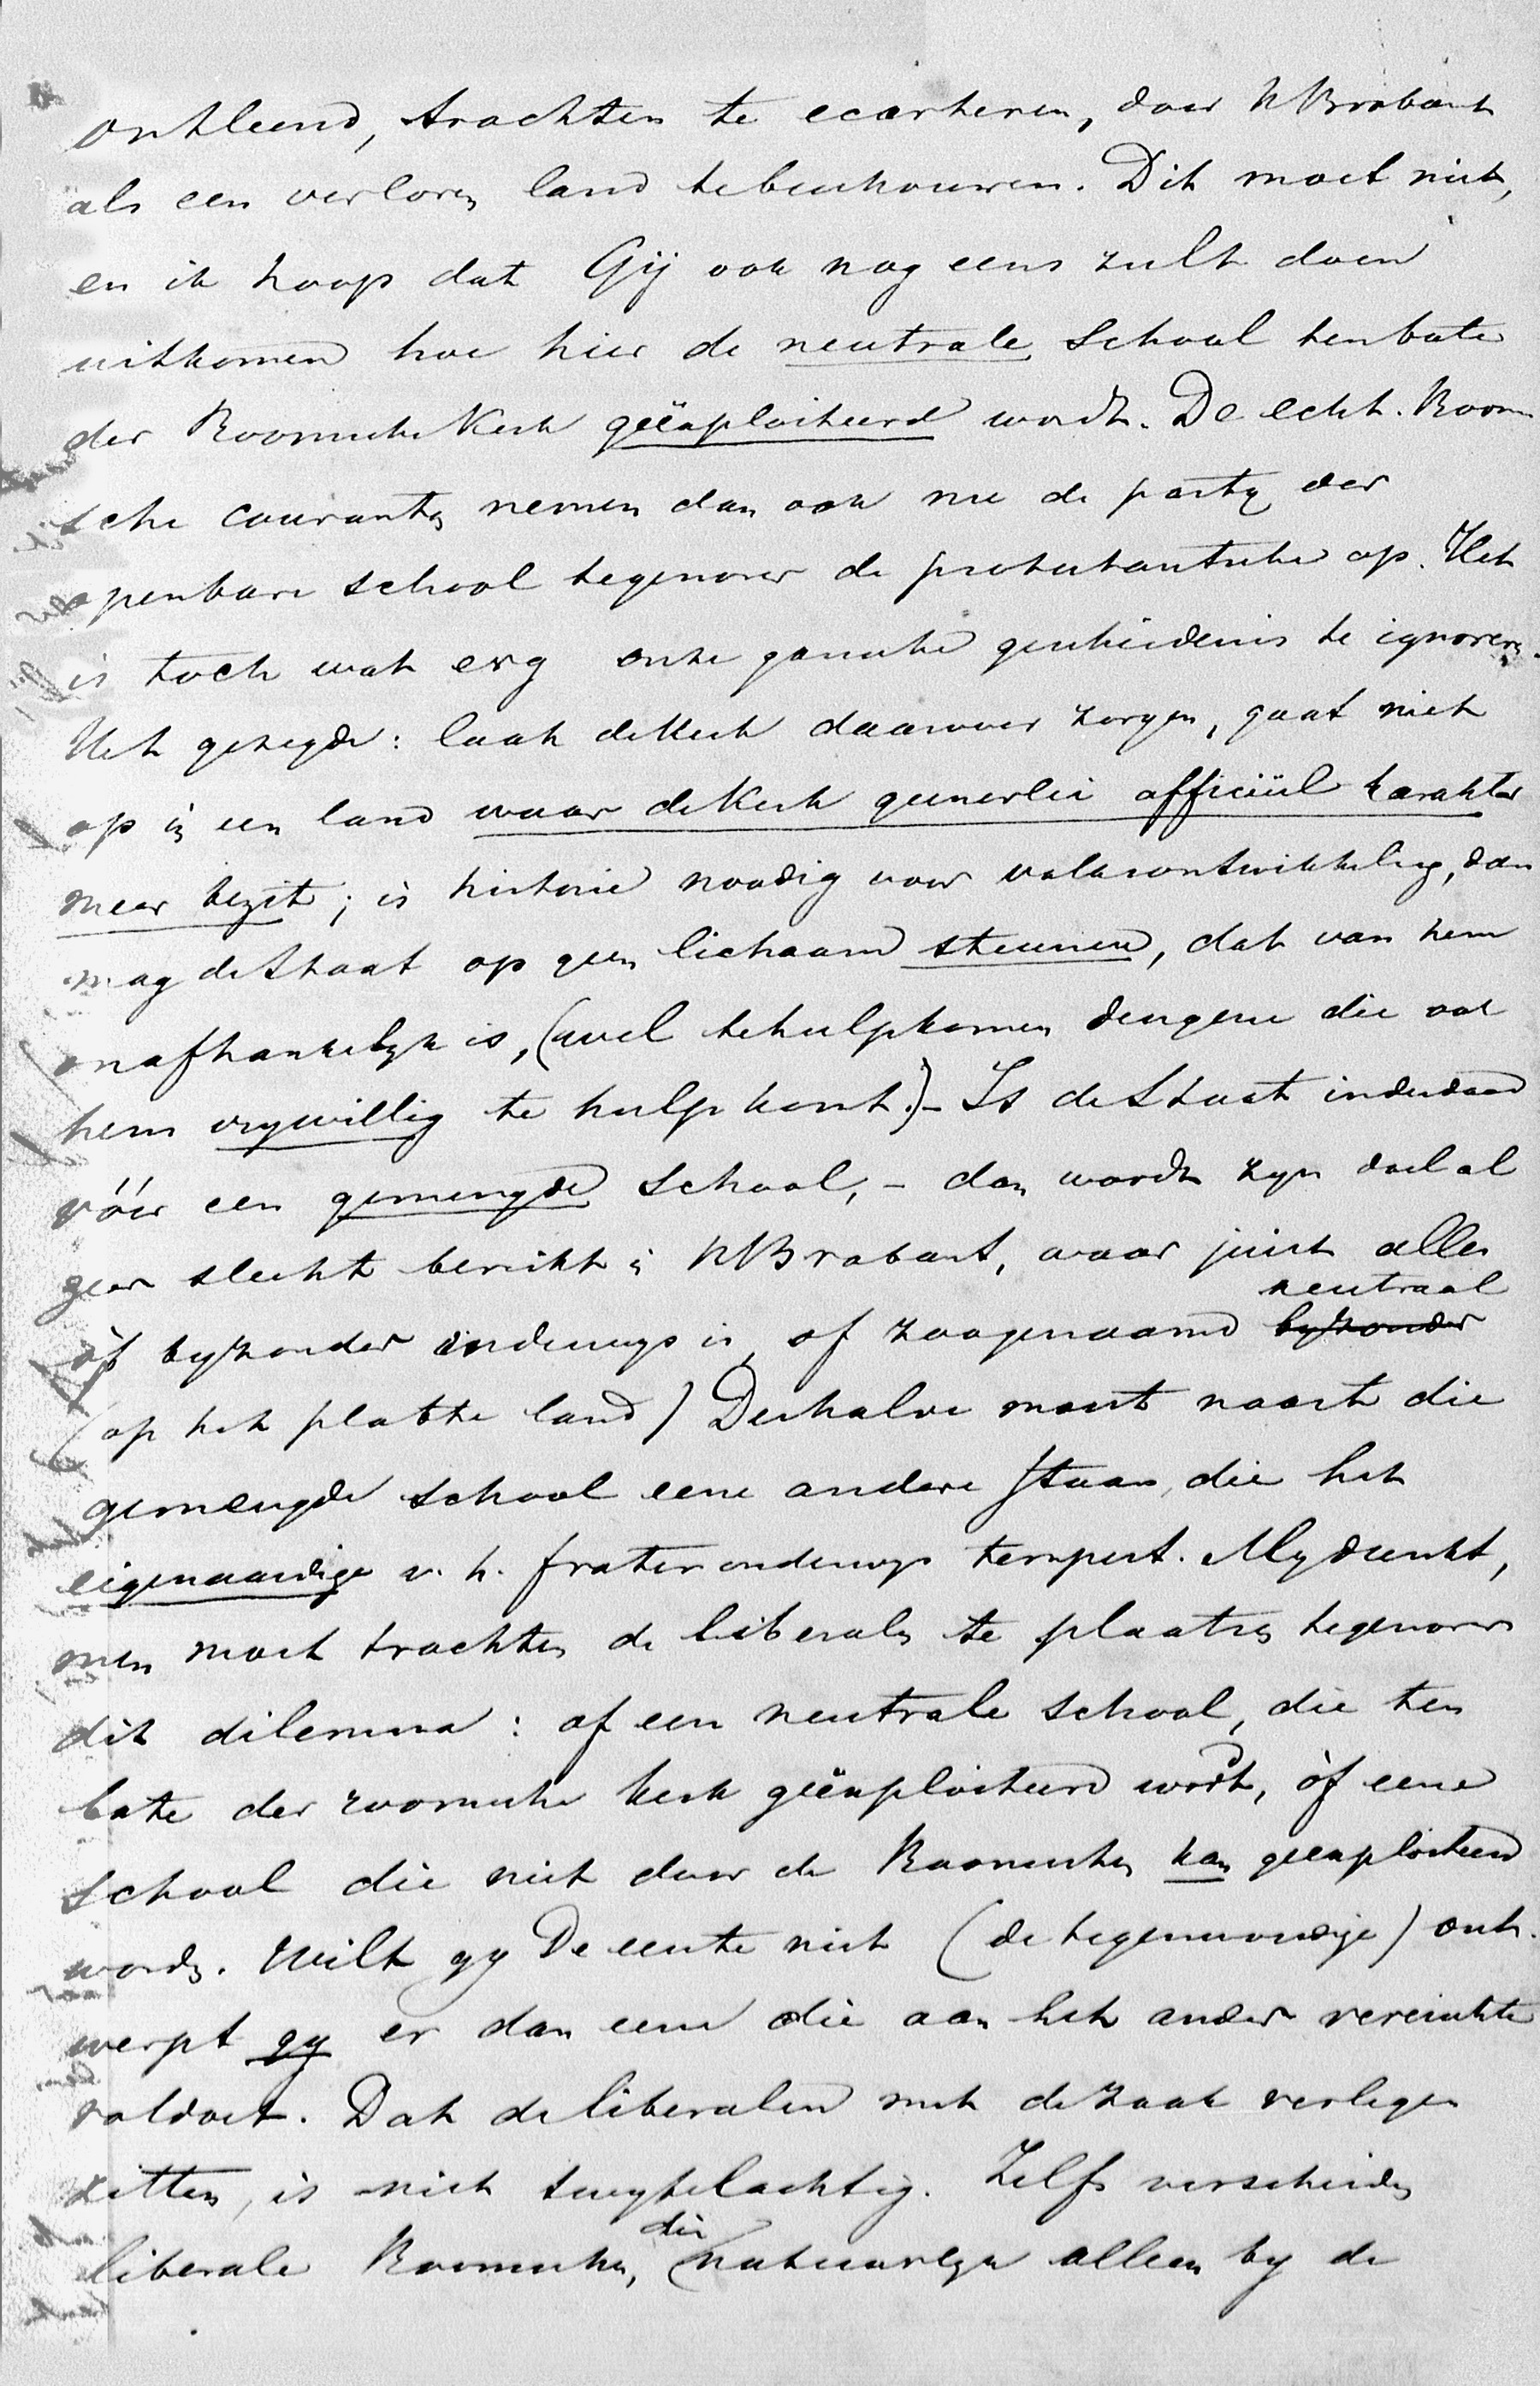 ontleend, trachten te ecarteren, door N Brabant
als een verloren land te beschouwen. Dit moet niet,
en ik hoop dat Gij ook nog eens zult doen
uitkomen hoe hier de neutrale school ten bate
der Roomsche Kerk geëxploiteerd wordt. De echt-Room-
sche couranten nemen dan ook nu de party der
openbare school tegenover de protestantsche op. Het
is toch wat erg onze gansche geschiedenis te ignoreren.
Het gezegde: laat de Kerk daarvoor zorgen, gaat niet
op in een land waar de Kerk geenerlei officiëel karakter
meer bezit; is historie noodig voor volksontwikkeling, dan
mag de Staat op geen lichaam steunen, dat van hem
onafhankelyk is, (wel te hulp komen dengene die ook
hem vrywillig te hulp komt.)- Is de Staat inderdaad
vóór een gemengde school, - dan wordt zyn doel al
zeer slecht bereikt in NBrabant, waar juist alles
neutraal
òf byzonder onderwys is, of zoogenaamd byzonder
(op het platte land) Derhalve moet naast die
gemengde school eene andere staan, die het
eigenaardige v. h. frater onderwys tempert. My dunkt,
men moet trachten de liberalen te plaatsen tegenover
dit dilemma: of een neutrale school, die ten
bate der roomsche kerk geëxploiteerd wordt, òf eene
school die niet door de Roomschen kan geexploiteerd
worden. Wilt gy De eerste niet (de tegenwoordige) ont-
werpt gy er dan eene die aan het ander vereischte
voldoet. Dat de liberalen met de zaak verlegen
zitten, is niet twyfelachtig. Zelfs verscheiden
die
liberale Roomschen, natuurlyk alleen by de